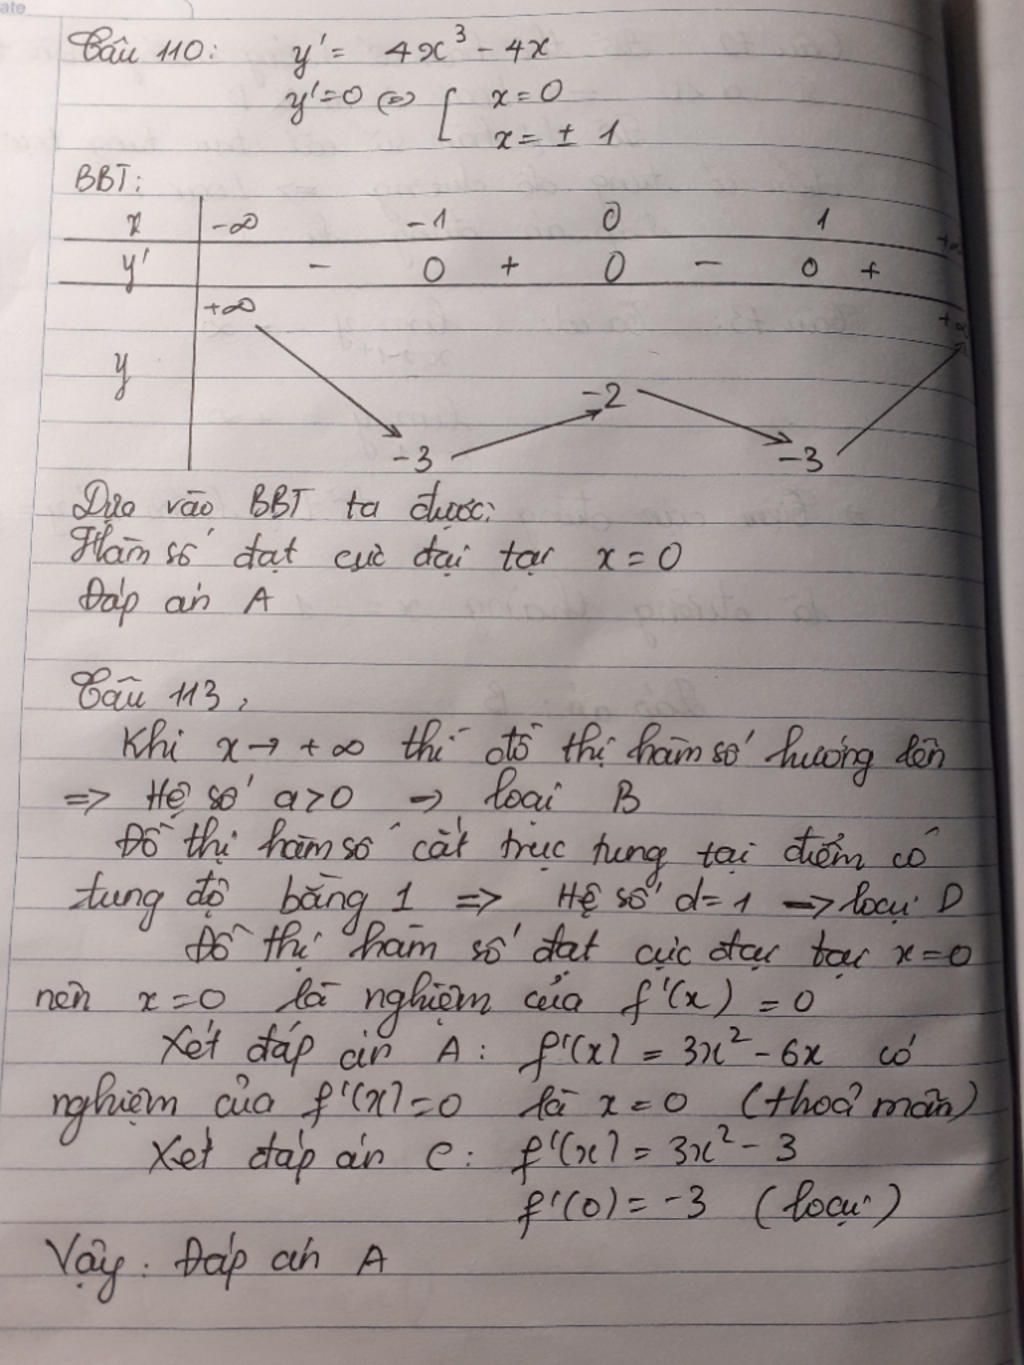 ate
Câu 110: y' = 4x³ - 4x
y'=0 (=) [ x=0
x= ± 1
BBT:
x -∞ -1 0 1 +∞
y' - 0 + 0 - 0 +
+∞ +∞
y -2
-3 -3
Dựa vào BBT ta được:
Hàm số đạt cực đại tại x = 0
Đáp án A
Câu 113,
Khi x → + ∞ thì đồ thị hàm số hướng lên
=> Hệ số a>0 → loại B
Đồ thị hàm số cắt trục tung tại điểm có
tung độ bằng 1 => Hệ số d=1 → loại D
Đồ thị hàm số đạt cực đại tại x=0
nên x=0 là nghiệm của f'(x) = 0
Xét đáp án A: f'(x) = 3x² - 6x có
nghiệm của f'(x)=0 là x=0 (thoả mãn)
Xét đáp án C: f'(x) = 3x² - 3
f'(0) = -3 (loại)
Vậy: Đáp án A